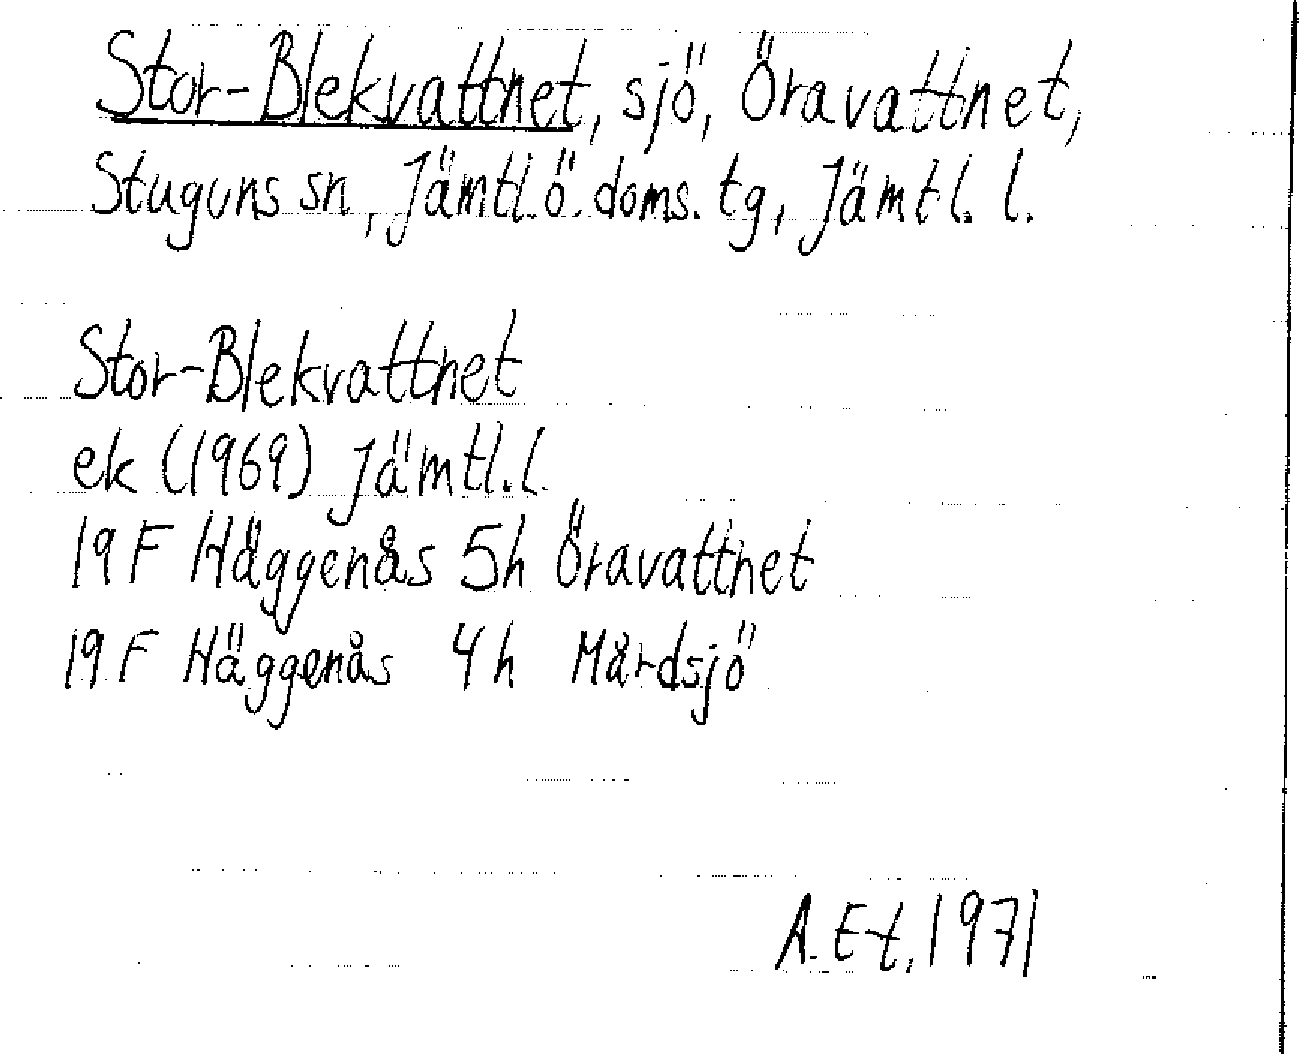 Stor-Blekvattnet, sjö, Öravattnet,
Stuguns sn, Jämtl.ö.doms.tg, Jämtl. l.
Stor-Blekvattnet
ek (1969) Jämtl.l.
19 F Häggenås 5h Öravattnet
19 F Häggenås 4h Mårdsjö
A. E-t, 1971